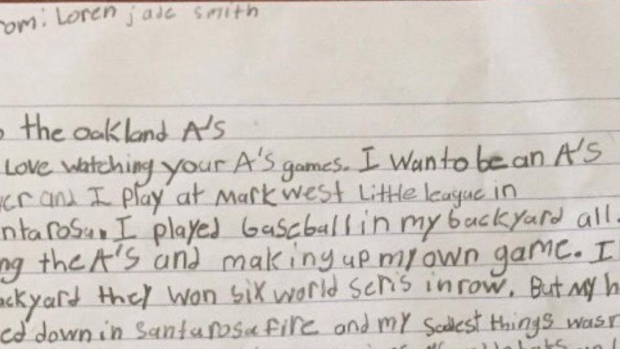 om: Loren jade smith
the oakland A's
Love watching your A's games. I wanto be an A's
and I Play at Mark west Little league in
ntarosa. I played baseball in my backyard all.
ng the A's and making up my own game. I
ackyard they won six world seris in row. But my h
ed down in santarosa fire and my sadest things wasn